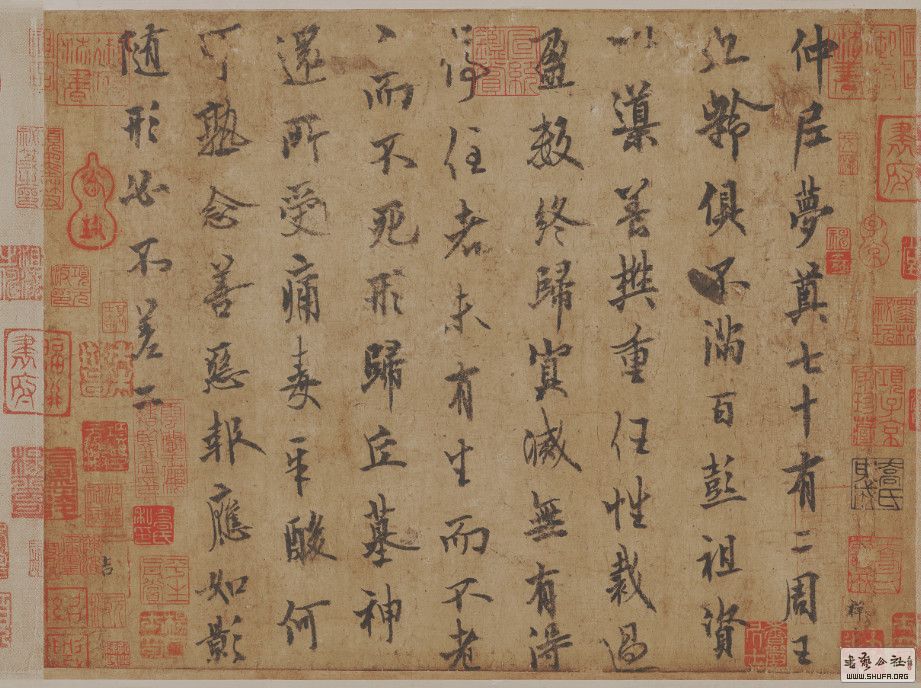 仲尼夢奠七十有二周王
九齡俱不滿百彭祖資
以導養樊重任性裁過
盈數終歸冥滅無有得
停住者未有生而不老
々而不死形歸丘墓神
還所受痛毒辛酸何
可熟念善惡報應如影
隨形必不差二
書藝公社
WWW.SHUFA.ORG